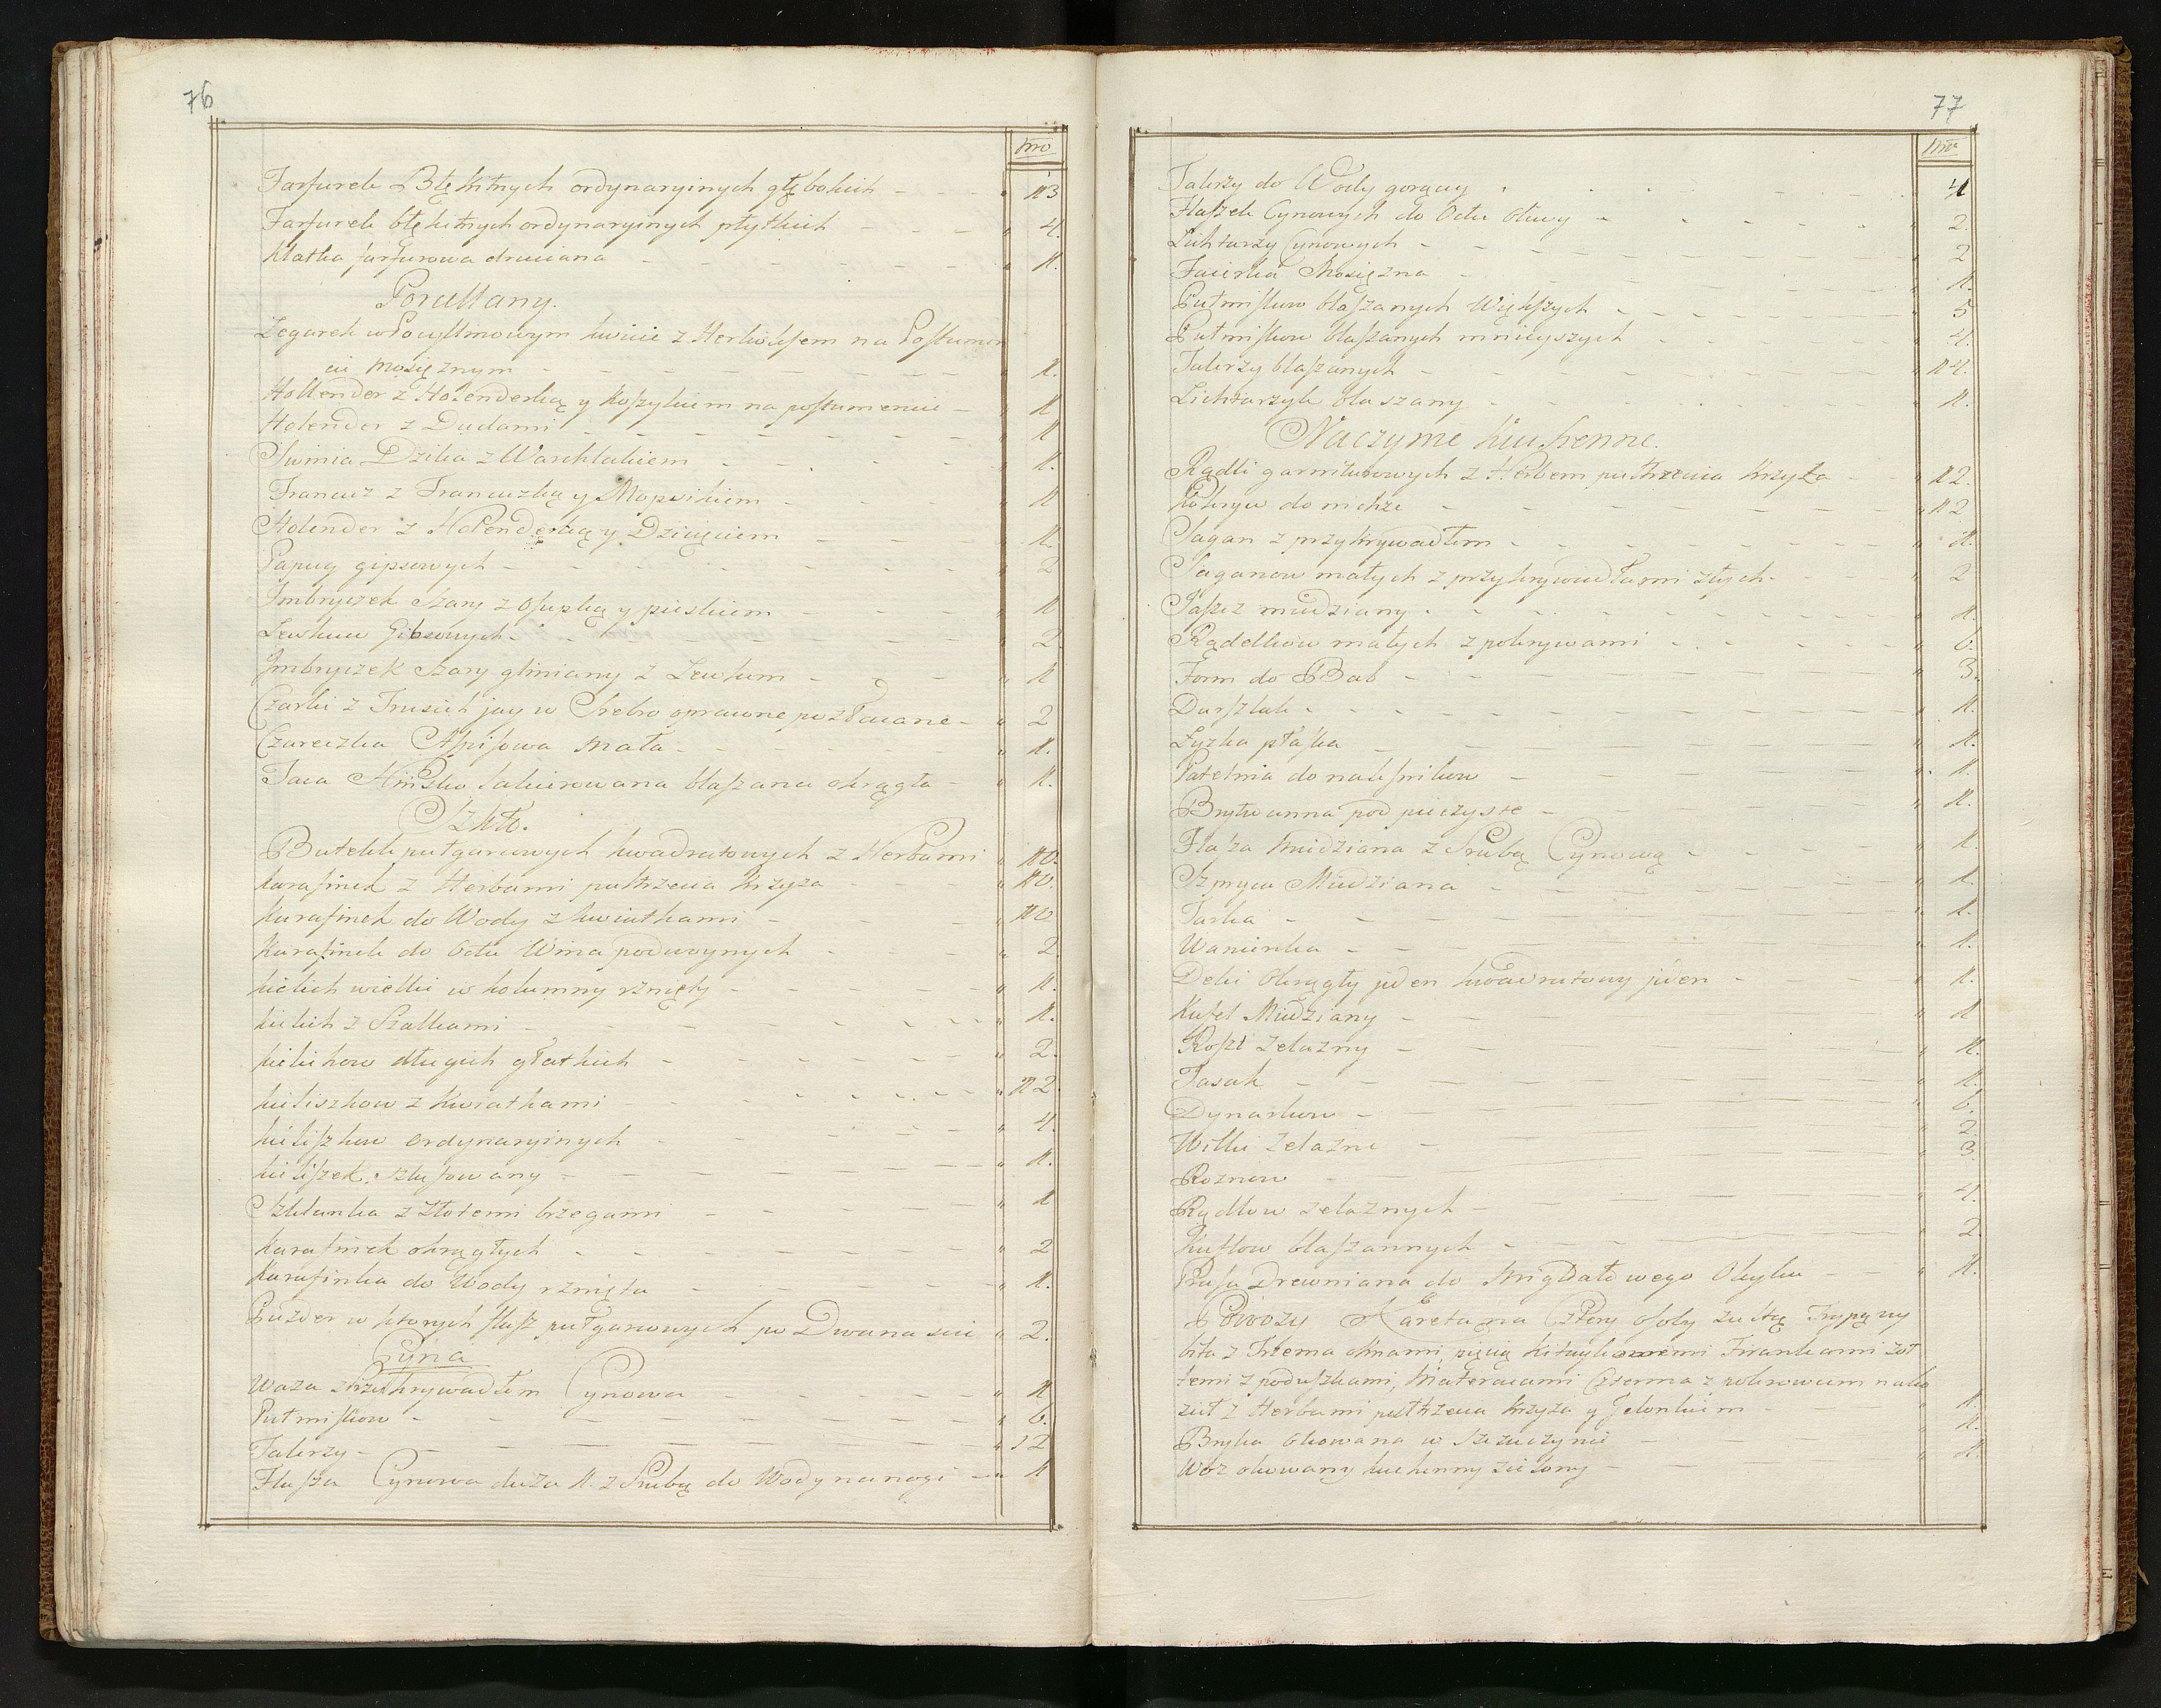 76
Nro
Farfurek Błękitnych ordynaryinych głębokich 13
Farfurek błękitnych ordynaryinych płytkich 4.
Klatka farfurowa druciana 1.
Porcellany.
Zegarek w Porcellinowym kwiecie z Herkulesem na Postumen
cie mosięznym 1.
Hollender z Holenderką y Koszykiem na postumencie 1
Holender z Dudami 1
Swinia Dzika z Warchlakiem 1.
Francuz z Francuzką y Mopsikiem 1
Holender z Holenderką y Dziecięciem 1.
Papug gipsowych 2
Imbryczek Szary z Osupką y pieskiem 1
Lewkow Gibsowych 2
Imbryczek Szary gliniany z Lewkiem 1
Czarki z Trusich jay w Srebro oprawne pozłacane 2
Czareczka Aspisowa mała 1.
Taca Chinsko lakierowana blaszana okrągła 1.
Szkło.
Butelek pułgarcowych kwadratowych z Herbami 10.
Karafinek z Herbami pułtrzecia krzyza 10.
Karafinek do Wody z kwiatkami 10
Karafinek do Octu Wina podwoynych 2
kielich wielki w kolumny rznięty 1.
kielich z Szalkami 1.
kielichow długich gładkich 2.
kieliszkow z Kwiatkami 12.
kieliszkow ordynaryinych 4.
kieliszek szlufowany 1.
Szklanka z złotemi brzegami 1
Karafinek okrągłych 2
Karafinka do Wody rznięta 1.
Puzder w ktorych flasz pułgarcowych po Dwanascie 2.
Cyna
Waza z Przykrywadłem Cynowa 1
Pułmiskow 6.
Talerzy 12
Flasza Cynowa duza 1. z Srubą do Wody na nogi 1
77
Nro
Talerzy do Wody gorący 4
Flaszek Cynowych do Octu Oliwy 2.
Lichtarzy Cynowych 2
Faierka Mosięzna 1.
Pułmiskow blaszanych Większych 5
Pułmiskow blaszanych mnieyszych 4.
Talerzy blaszanych 14.
Lichtarzyk blaszany 1.
Naczynie Kuchenne.
Rądli garniturowych z Herbem pułtrzecia krzyza 12.
Pokryw do nichze 12
Sagan z przykrywadłem 1.
Saganow małych z przykrywadłami złych 2
miedziany 1.
Rądelkow małych z pokrywami 6.
Form do Bab 3.
Durszlak 1.
Łyzka płaska 1.
Patelnia do nalesnikow 1.
Brytwanna pod pieczyste 1.
Flasza miedziana z Srubą Cynową 1.
Szpryca Miedziana 1.
Tarka 1.
Wanienka 1.
Deki Okrągły jeden kwadratowy jeden 1.
Kufel Miedziany 1
Roszt zelazny 1.
Tasak 1.
Dynarkow 6.
Wilki zelazne 2
Roznow 3
Rądlow zelaznych 4.
Kuflow blaszannych 2.
Prasa Drewniana do Migdałowego Oleyku 1.
Powozy Kareta na Cztery Osoby zułtą Trypą wy
bita z Trzema oknami pięcią Kitaykowemi Firankami zoł
temi z poduszkami, Materacami Czterma z pokrowcem na ko
zieł z Herbami pułtrzecia Krzyza y Jelonkiem 1.
Bryka Okowana w Szczuczynie 1.
Woz okowany kuchenny zielony 1.